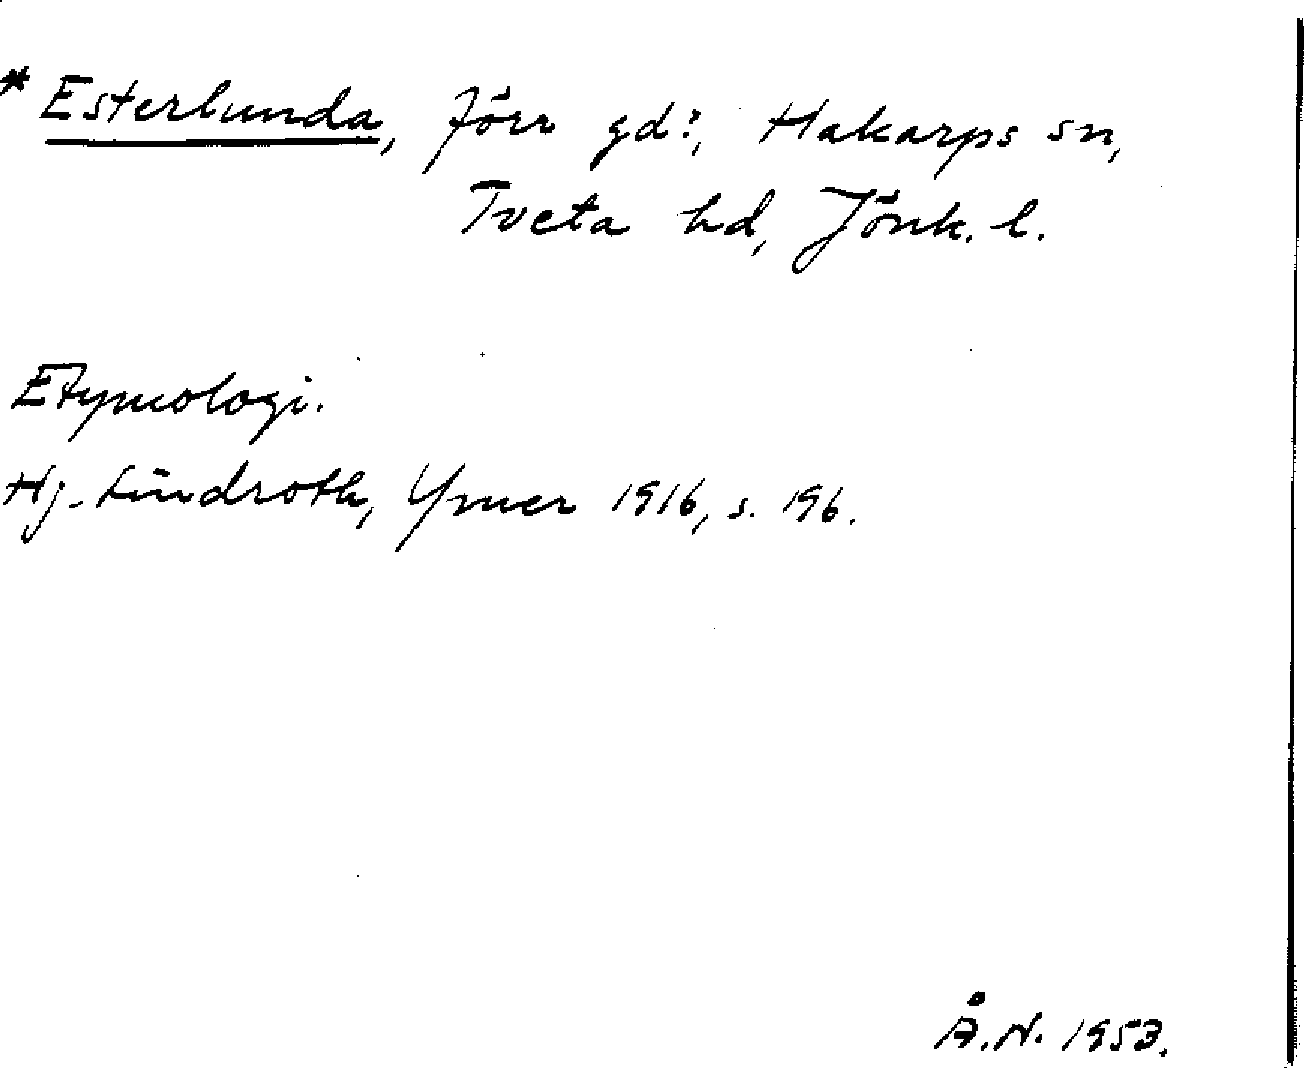 * Esterlunda, förr gd?, Hakarps sn,
Tveta hd, Jönk. l.
Etymologi.
Hj. Lindroth, Ymer 1916, s. 196.
Å.N. 1953.